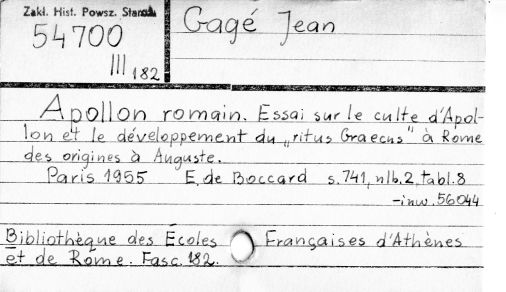 Zakł. Hist. Powsz. Staroż.
54700
III 182
Gagé Jean
Apollon romain. Essai sur le culte d'Apol-
lon et le développement du „ritus Graecus" à Rome
des origines à Auguste.
Paris 1955 E. de Boccard s. 741, nlb. 2, tabl. 8
-inw. 56044
Bibliothèque des Écoles Françaises d'Athènes
et de Rome. Fasc. 182.